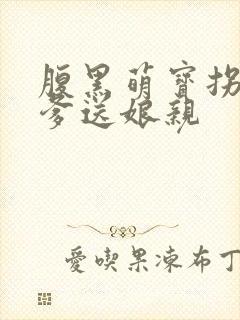 腹黑萌寶拐
爹送娘親
愛喫果凍布丁